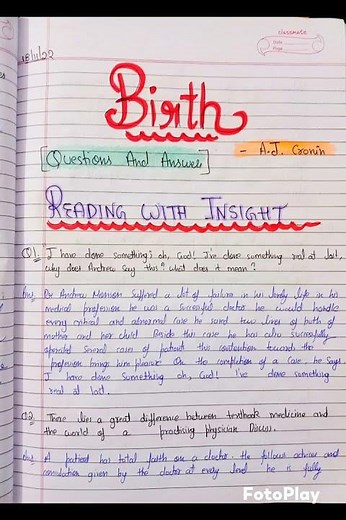 classmate
Date
Page
18/11/22
Birth
- A.J. Cronin
[Questions And Answer]
READING WITH INSIGHT
Q1. "I have done something; oh, God! I've done something real at last,
why does Andrew say this? what does it mean?
Ans Dr Andrew Manson suffered a lot of failure in his lonely life in his
medical profession he was a successful doctor he would handle
every critical and abnormal case he saved two lives of both of
mother and her child. Beside this case he has also successfully
operated several cases of patient this satisfaction towards the
profession brings him pleasure. On the completion of a case, he says
I have done something oh, God! I've done something
real at last.
Q2. There lies a great difference between textbook medicine and
the world of a practising physician Discuss.
Ans A patient has total faith on a doctor. He follows advice and
consultation given by the doctor at every level he is fully
FotoPlay